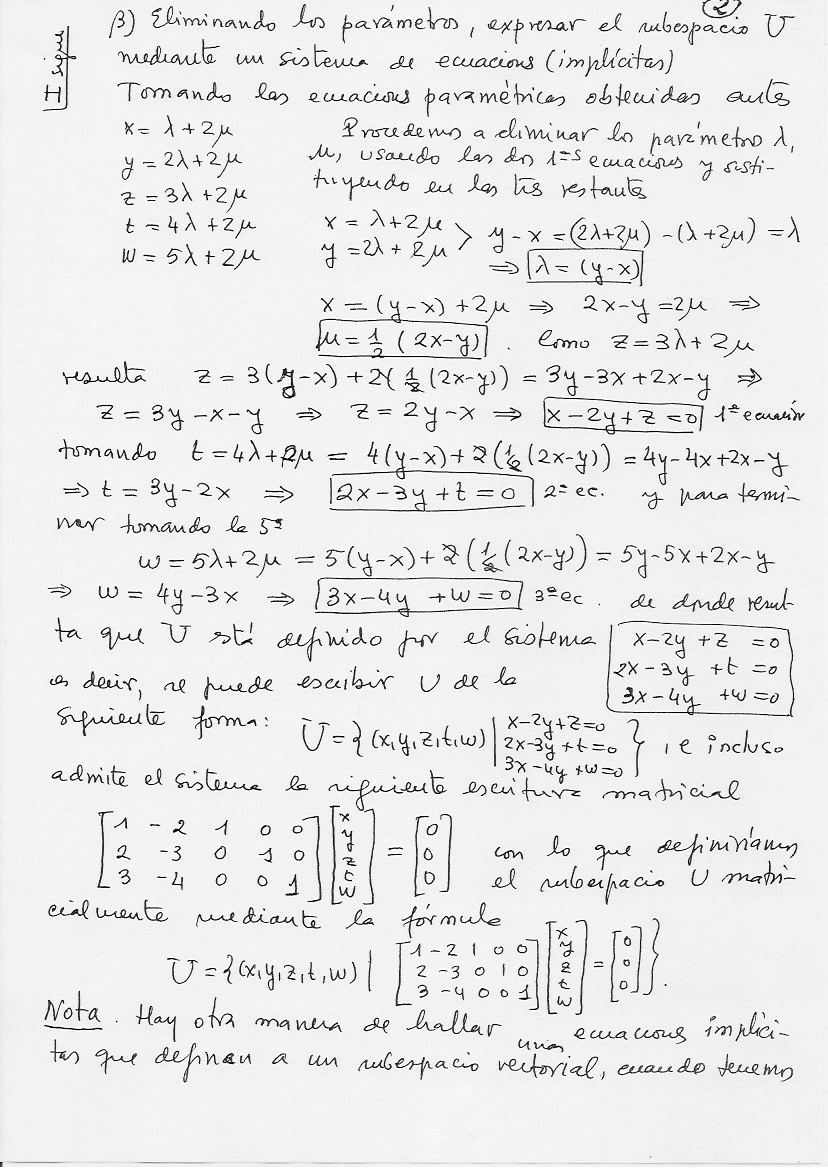 2
II sigue
β) Eliminando los parámetros, expresar el subespacio U
mediante un sistema de ecuacions (implícitas)
Tomando las ecuacions paramétricas obtenidas antes
x = λ + 2μ
y = 2λ + 2μ
z = 3λ + 2μ
t = 4λ + 2μ
w = 5λ + 2μ
Procedemos a eliminar los parámetro λ,
μ, usando las dos 1=s ecuacions y susti-
tuyendo en las tres restantes
x = λ + 2μ
y = 2λ + 2μ > y - x = (2λ + 2μ) - (λ + 2μ) = λ
⇒ λ = (y-x)
x = (y-x) + 2μ ⇒ 2x - y = 2μ ⇒
μ = 1/2 (2x-y) . Como z = 3λ + 2μ
resulta z = 3(y-x) + 2(1/2 (2x-y)) = 3y - 3x + 2x - y ⇒
z = 3y - x - y ⇒ z = 2y - x ⇒ x - 2y + z = 0 1ª ecuación
tomando t = 4λ + 2μ = 4(y-x) + 2(1/2 (2x-y)) = 4y - 4x + 2x - y
⇒ t = 3y - 2x ⇒ 2x - 3y + t = 0 2ª ec. y para termi-
nar tomando la 5ª
w = 5λ + 2μ = 5(y-x) + 2(1/2 (2x-y)) = 5y - 5x + 2x - y
⇒ w = 4y - 3x ⇒ 3x - 4y + w = 0 3ª ec. de donde resul-
ta que U está definido por el sistema
x - 2y + z = 0
2x - 3y + t = 0
3x - 4y + w = 0
es decir, se puede escribir U de la
siguiente forma: U = { (x,y,z,t,w) | x-2y+z=0
2x-3y+t=0
3x-4y+w=0 } , e incluso
admite el sistema la siguiente escritura matricial
[1 -2 1 0 0] [x] [0]
[2 -3 0 1 0] [y] = [0]
[3 -4 0 0 1] [z] [0]
[t]
[w]
con lo que definiríamos
el subespacio U matri-
cialmente mediante la fórmula
U = {(x,y,z,t,w) | [1 -2 1 0 0] [x] [0]
[2 -3 0 1 0] [y] = [0]
[3 -4 0 0 1] [z] [0] }.
[t]
[w]
Nota. Hay otra manera de hallar unas ecuacions implíci-
tas que definen a un subespacio vectorial, cuando tenemos